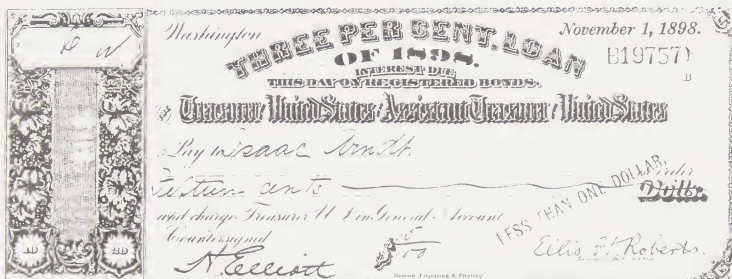 Washington November 1, 1898.
THREE PER CENT. LOAN
OF 1898.
B19757
INTEREST DUE
THIS DAY ON REGISTERED BONDS.
B
Treasurer United States Assistant Treasurer United States
Pay to Isaac Arndt.
Order
Fifteen cents Dolls.
LESS THAN ONE DOLLAR.
and charge Treasurer U S in General Account
Countersigned
$ 15/100
H Elliott Ellis H Roberts.
Bureau, Engraving & Printing